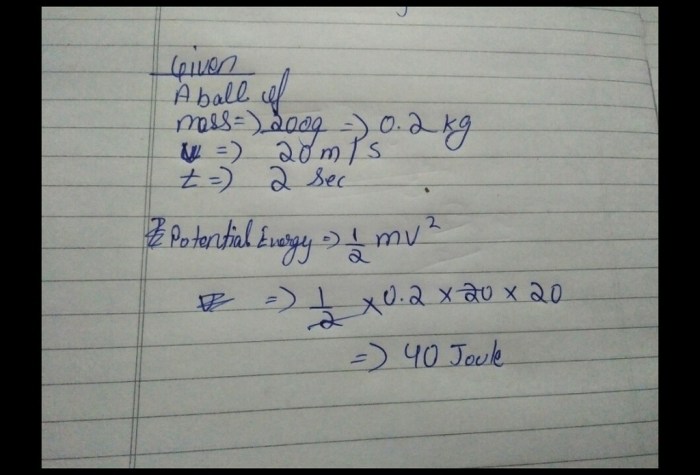 Given
A ball of
mass => 200g => 0.2 kg
u => 20 m/s
t => 2 sec
Potential Energy => 1/2 mv²
=> 1/2 × 0.2 × 20 × 20
=> 40 Joule